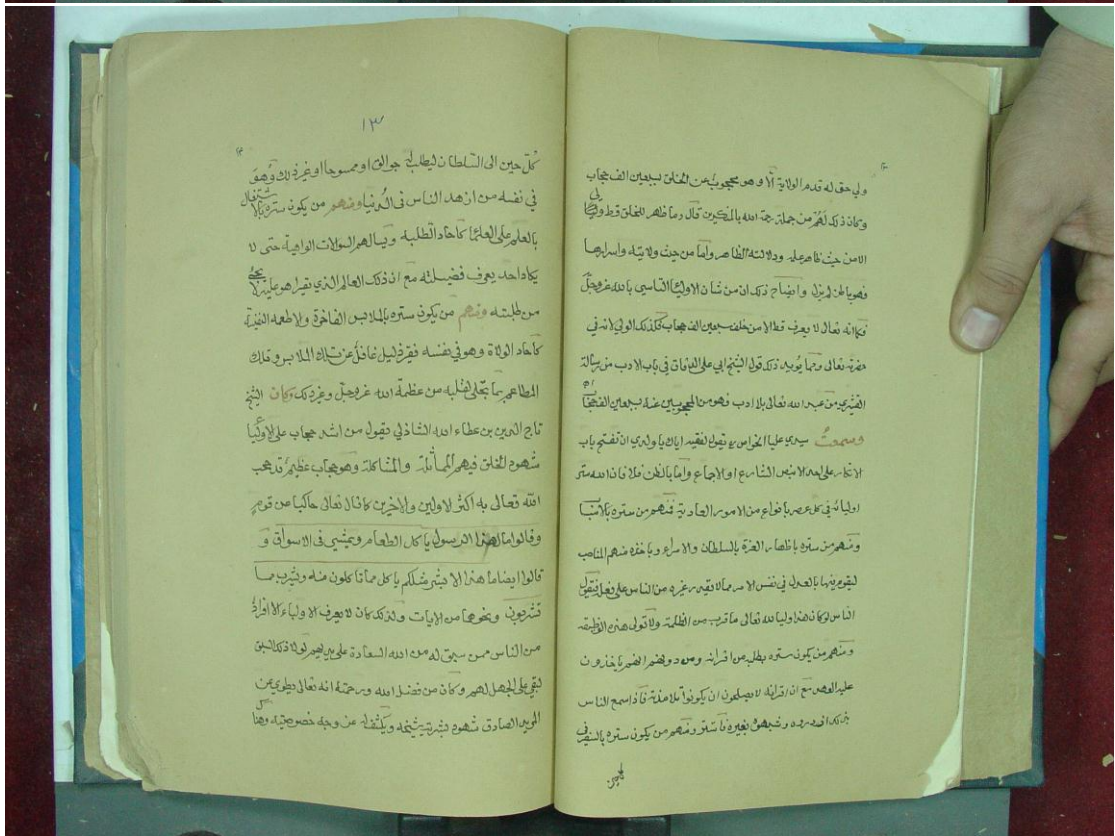 ولي حق له قدم الولاية الا وهو محجوب عن الخلق بسبعين الف حجاب
وكان ذلك لهم من جملة رحمة الله بالمنكرين قال وما ظهر للخلق قط ولي
الا من حيث ظاهر علمه ودلالته الظاهر واما من حيث ولايته واسرارها
فهو باطن لم يزل وايضاح ذلك ان من شان الاوليا التاسي بالله عزوجل
فكما انه تعالى لا يعرف قط الا من خلف سبعين الف حجاب فكذلك الولي لانه في
حضرته تعالى ومما يويد ذلك قول الشيخ ابي علي الدقاق في باب الادب من رسالة
القشيري من عبد الله تعالى بلا ادب فهو من المحجوبين عنه بسبعين الف حجابا
وسمعت سيدي عليا الخواص يقول لفقيه اياك يا ولدي ان تفتح باب
الانكار على احد الا بنص الشارع او الاجماع واما بالظن فلا فان الله ستر
اوليائه في كل عصر بانواع من الامور العادية فمنهم من ستره بالاسباب
ومنهم من ستره باظهار العزة بالسلطان والامراء وباخذه منهم المناصب
ليقوم فيها بالعدل في نفس الامر مما لا يقدر غيره من الناس على فعله فيقول
الناس لو كان هذا وليا لله تعالى ما قرب من الظلمة ولا تولى هذه الوظيفة
ومنهم من يكون ستره بطلبه من اقرانه ومن دونهم انهم ياخذون
عليه العهد مع ان اقرانه لا يصلحون ان يكونوا تلامذته فاذا سمع الناس
بذلك ازدروه وشبهوه بغيره فاستتر ومنهم من يكون ستره بالسفر في
كل حين
١٣
كل حين الى السلطان ليطلب له جوالق او ممسوحا او غير ذلك وهو
في نفسه من ازهد الناس في الدنيا ومنهم من يكون ستره بالاشتغال
بالعلم على العلماء كآحاد الطلبة ويسالهم السؤلات الواهية حتى لا
يكاد احد يعرف فضيلته مع ان ذلك العالم الذي يقرا هو عليه لا يجئ
من طلبته ومنهم من يكون ستره بالملابس الفاخرة والاطعمه اللذيذة
كآحاد الولاة وهو في نفسه فقير ذليل غافل عن تلك الملابس وتلك
المطاعم بما تجلى لقلبه من عظمة الله عزوجل وغير ذلك وكان الشيخ
تاج الدين بن عطاء الله الشاذلي يقول من اشد حجاب على الاوليا
شهود الخلق فيهم المماثلة والمشاكلة وهو حجاب عظيم قد حجب
الله تعالى به اكثر الاولين والاخرين كما قال تعالى حاكيا عن قوم
وقالوا ما لهذا الرسول ياكل الطعام ويمشي في الاسواق و
قالوا ايضا ما هذا الا بشر مثلكم ياكل مما تاكلون منه ويشرب مما
تشربون ونحوها من الايات ولذلك كان لا يعرف الاولياء الا افراد
من الناس ممن سبق له من الله السعادة على يديهم لولا ذلك السبق
لبقي على الجهل لهم وكان من فضل الله ورحمته انه تعالى يطوي عن
المريد الصادق شهود بشرية شيخه ويكشف له عن وجه خصوصيته وهنا